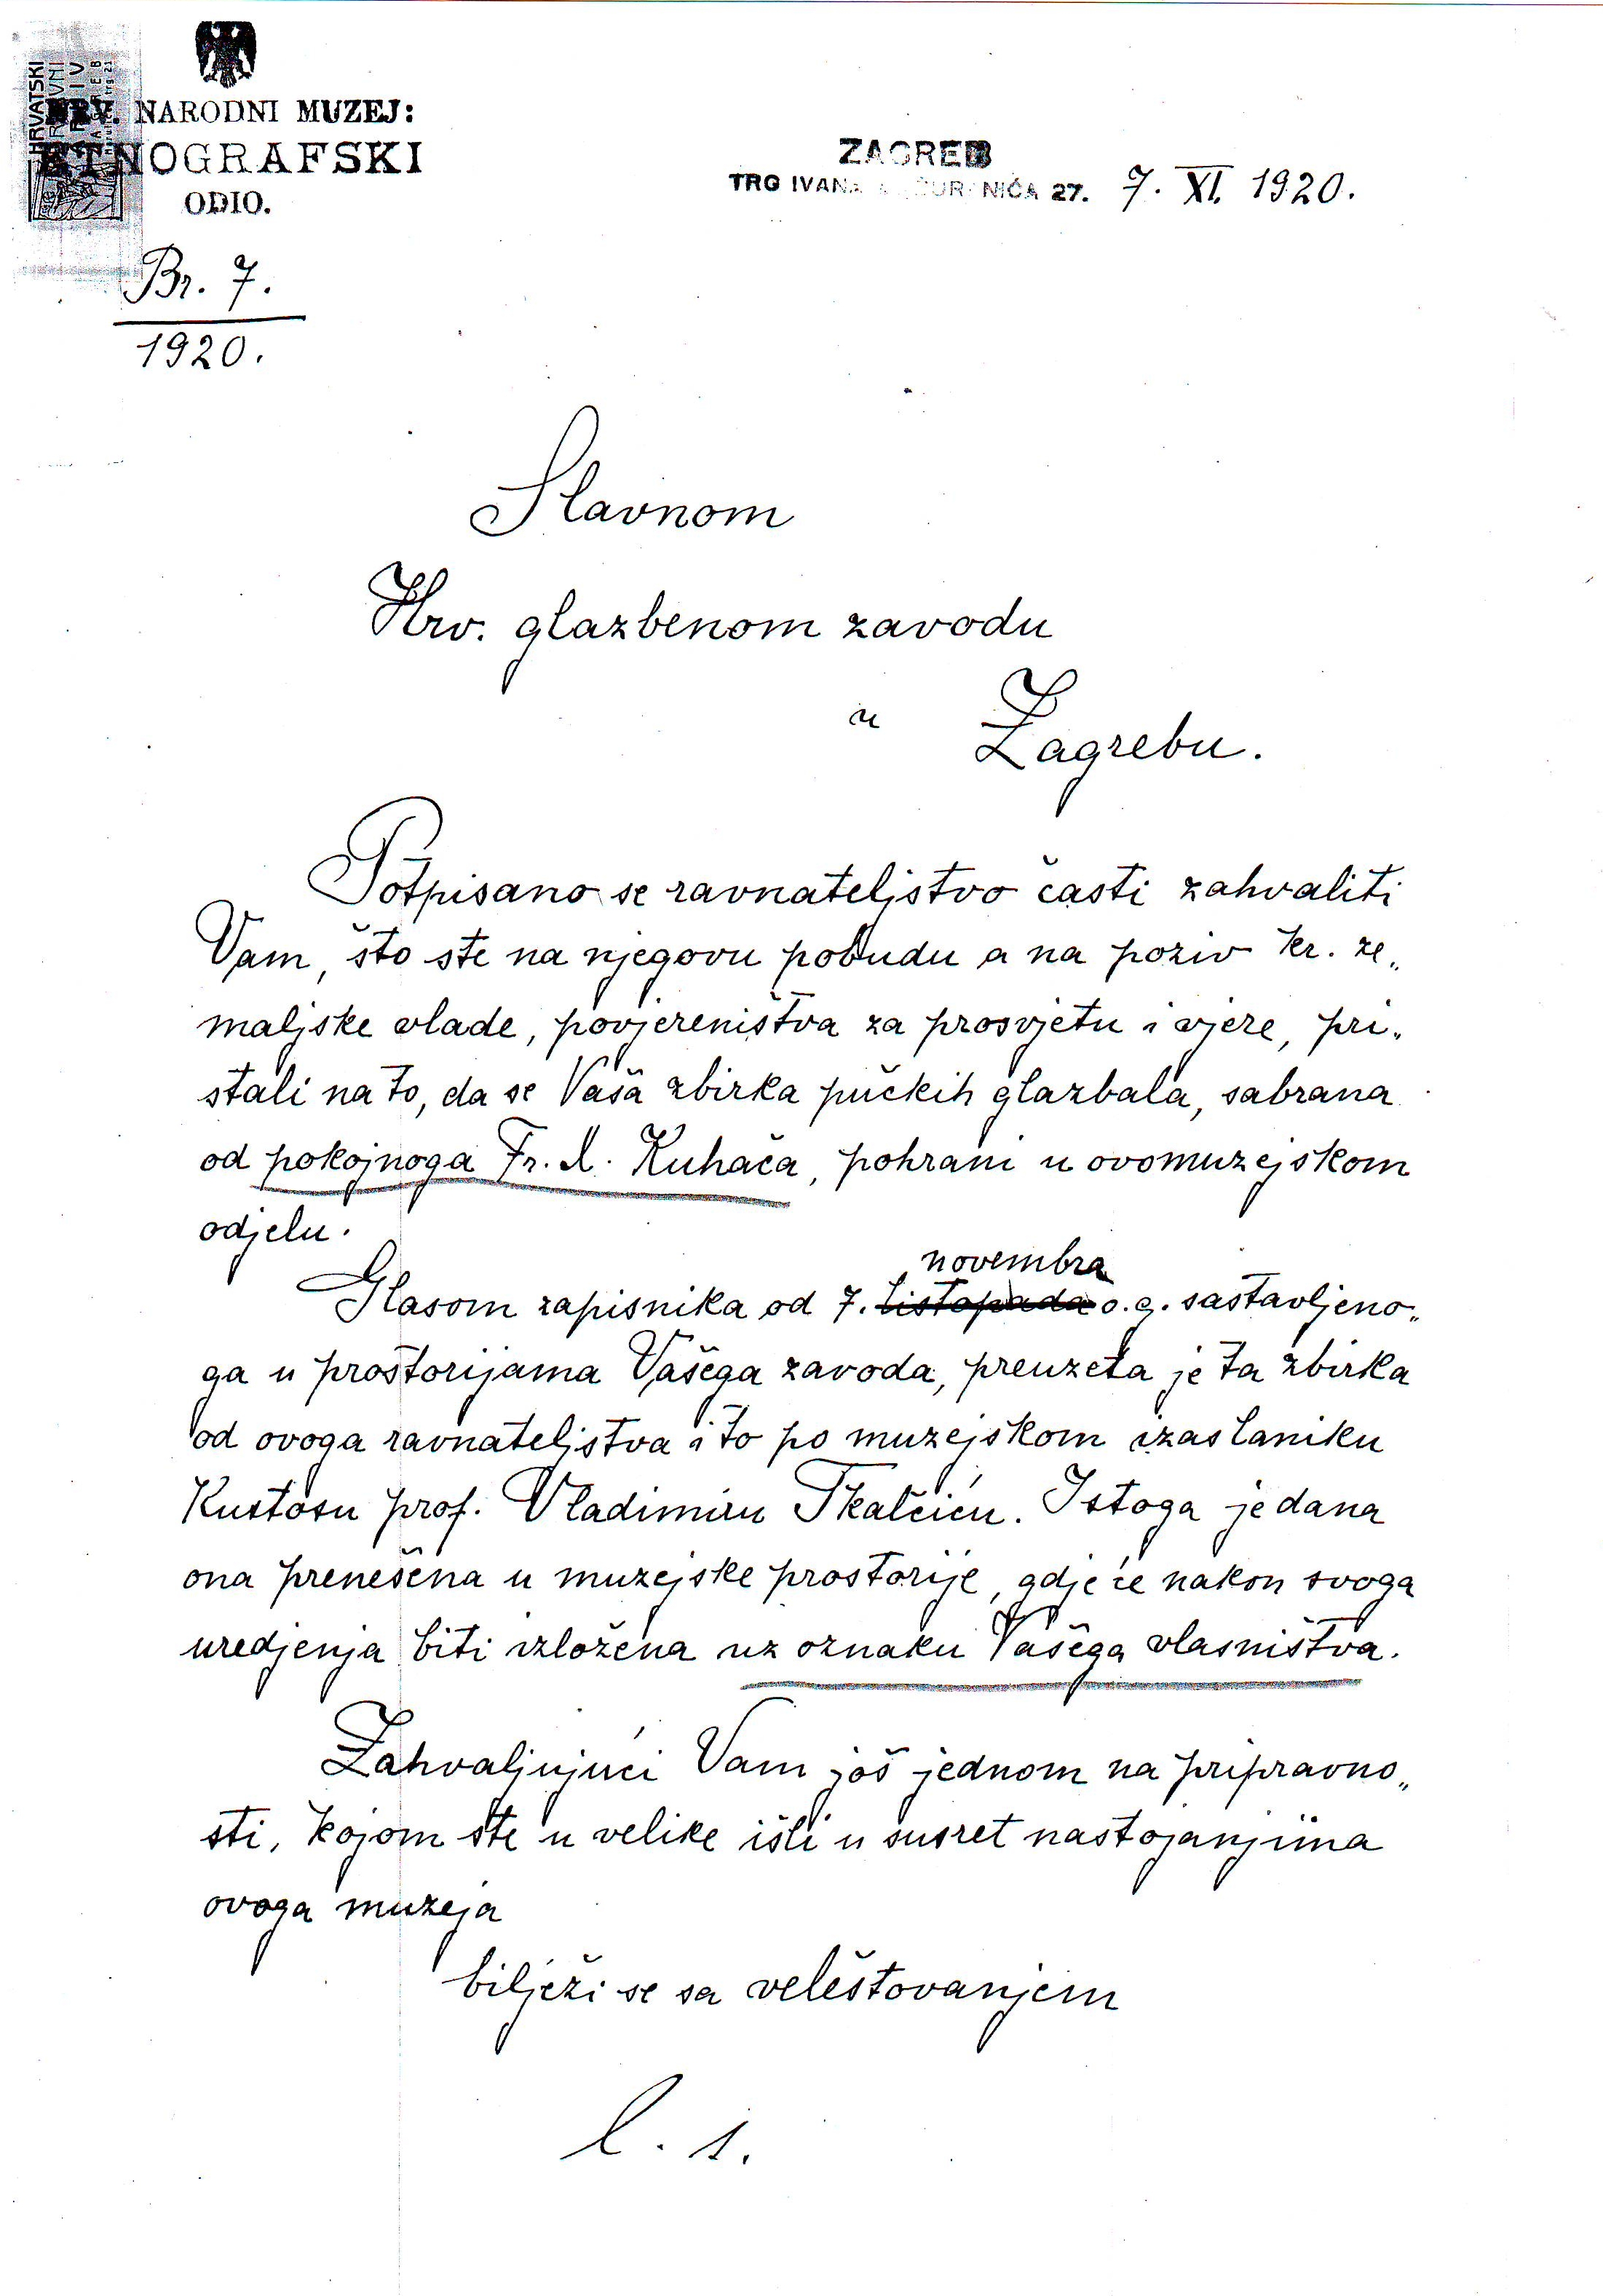 HRVATSKI
HRV. NARODNI MUZEJ:
ETNOGRAFSKI
ODIO.
ZAGREB
TRG IVANA MAŽURANIĆA 27. 7. XI. 1920.
Br. 7.
1920.
Slavnom
Hrv. glazbenom zavodu
u Zagrebu.
Potpisano se ravnateljstvo časti zahvaliti
Vam, što ste na njegovu pobudu a na poziv kr. ze„
maljske vlade, povjereništva za prosvjetu i vjere, pri„
stali na to, da se Vaša zbirka pučkih glazbala, sabrana
od pokojnoga Fr. X. Kuhača, pohrani u ovomuzejskom
odjelu.
novembra
Glasom zapisnika od 7. listopada o. g. sastavljeno„
ga u prostorijama Vašega zavoda, preuzeta je ta zbirka
od ovoga ravnateljstva i to po muzejskom izaslaniku
kustosu prof. Vladimiru Tkalčiću. Istoga je dana
ona prenešena u muzejske prostorije, gdje će nakon svoga
uredjenja biti izložena uz oznaku Vašega vlasništva.
Zahvaljujući Vam još jednom na pripravno„
sti, kojom ste u velike išli u susret nastojanjima
ovoga muzeja
bilježi se sa veleštovanjem
l. s.